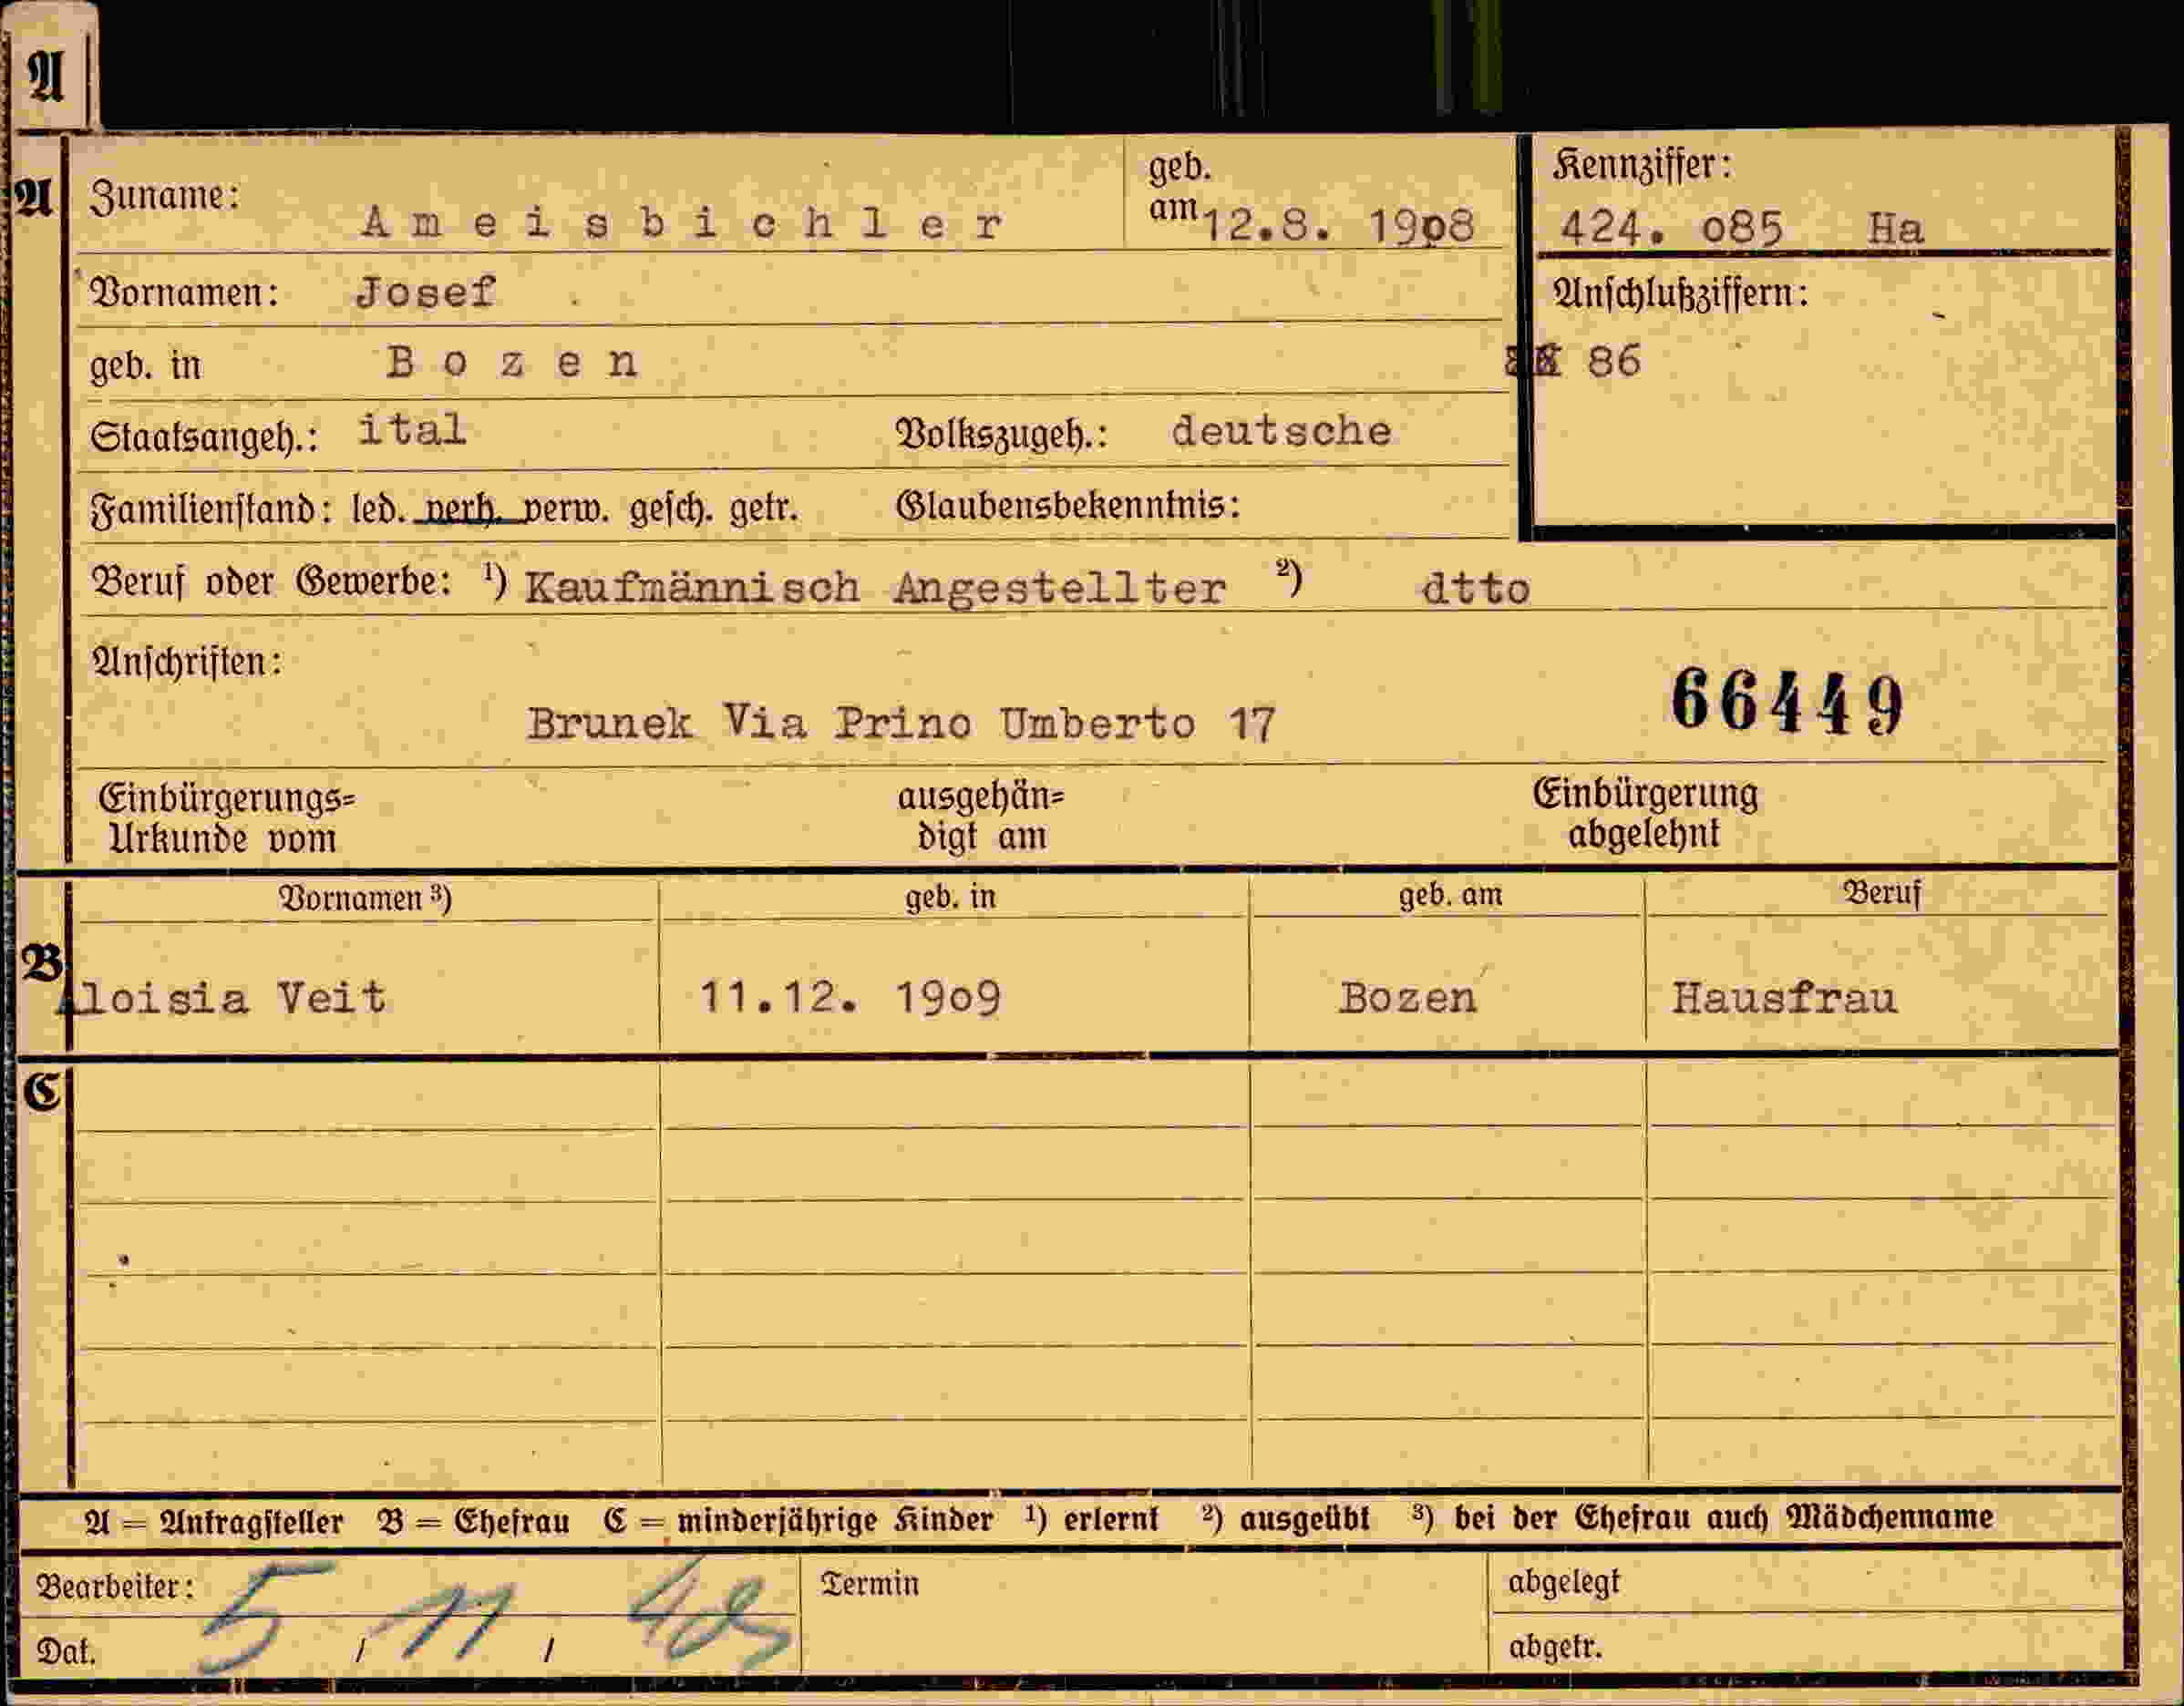 A
A
Zuname: Ameisbichler geb. am 12.8. 1908
Kennziffer:
424. o85 Ha
Vornamen: Josef
Anschlußziffern:
geb. in Bozen
86
Staatsangeh.: ital Volkszugeh.: deutsche
Familienstand: led. verh. verw. gesch. getr. Glaubensbekenntnis:
Beruf oder Gewerbe: ¹) Kaufmännisch Angestellter ²) dtto
Anschriften:
66449
Brunek Via Prino Umberto 17
Einbürgerungs= Urkunde vom
ausgehän= digt am
Einbürgerung abgelehnt
Vornamen ³) geb. in geb. am Beruf
B
Aloisia Veit 11.12. 19o9 Bozen Hausfrau
C
A = Antragsteller B = Ehefrau C = minderjährige Kinder ¹) erlernt ²) ausgeübt ³) bei der Ehefrau auch Mädchenname
Bearbeiter: Termin abgelegt
Dat. 5 / 11 / abgetr.